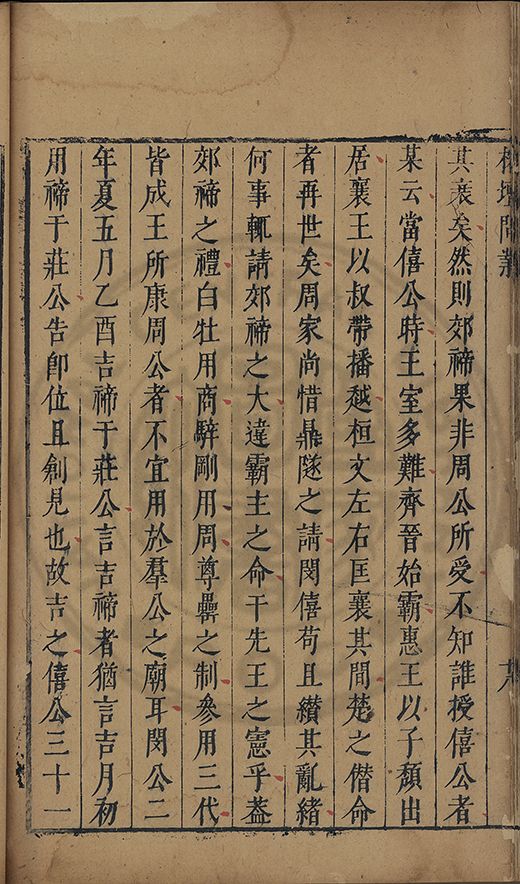 其衰矣然則郊禘果非周公所受不知誰授僖公者
某云當僖公時王室多難齊晉始霸惠王以子頽出
居襄王以叔帶播越桓文左右匡襄其間楚之僭命
者再世矣周家尚惜鼎隧之請閔僖苟且纉其亂緒
何事輒請郊禘之大違霸主之命干先王之憲乎葢
郊禘之禮白牡用商騂剛用周尊罍之制參用三代
皆成王所康周公者不宜用於羣公之廟耳閔公二
年夏五月乙酉吉禘于莊公言吉禘者猶言吉月初
用禘于莊公告卽位且創見也故吉之僖公三十一